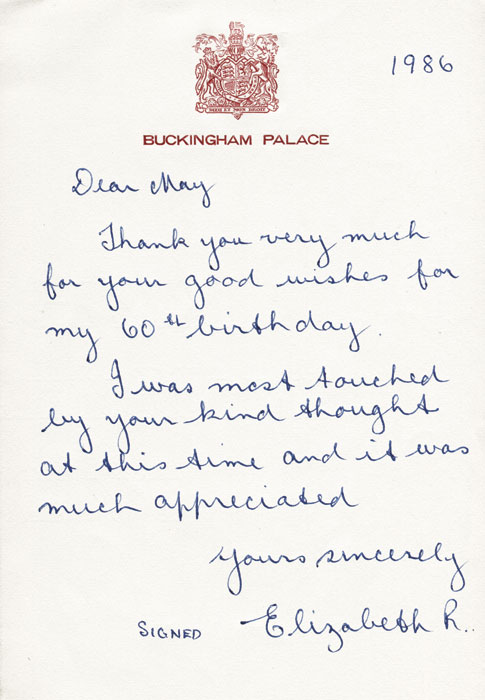 1986
DIEU ET MON DROIT
BUCKINGHAM PALACE
Dear May
Thank you very much
for your good wishes for
my 60th birthday.
I was most touched
by your kind thought
at this time and it was
much appreciated
Yours sincerely
SIGNED Elizabeth R.